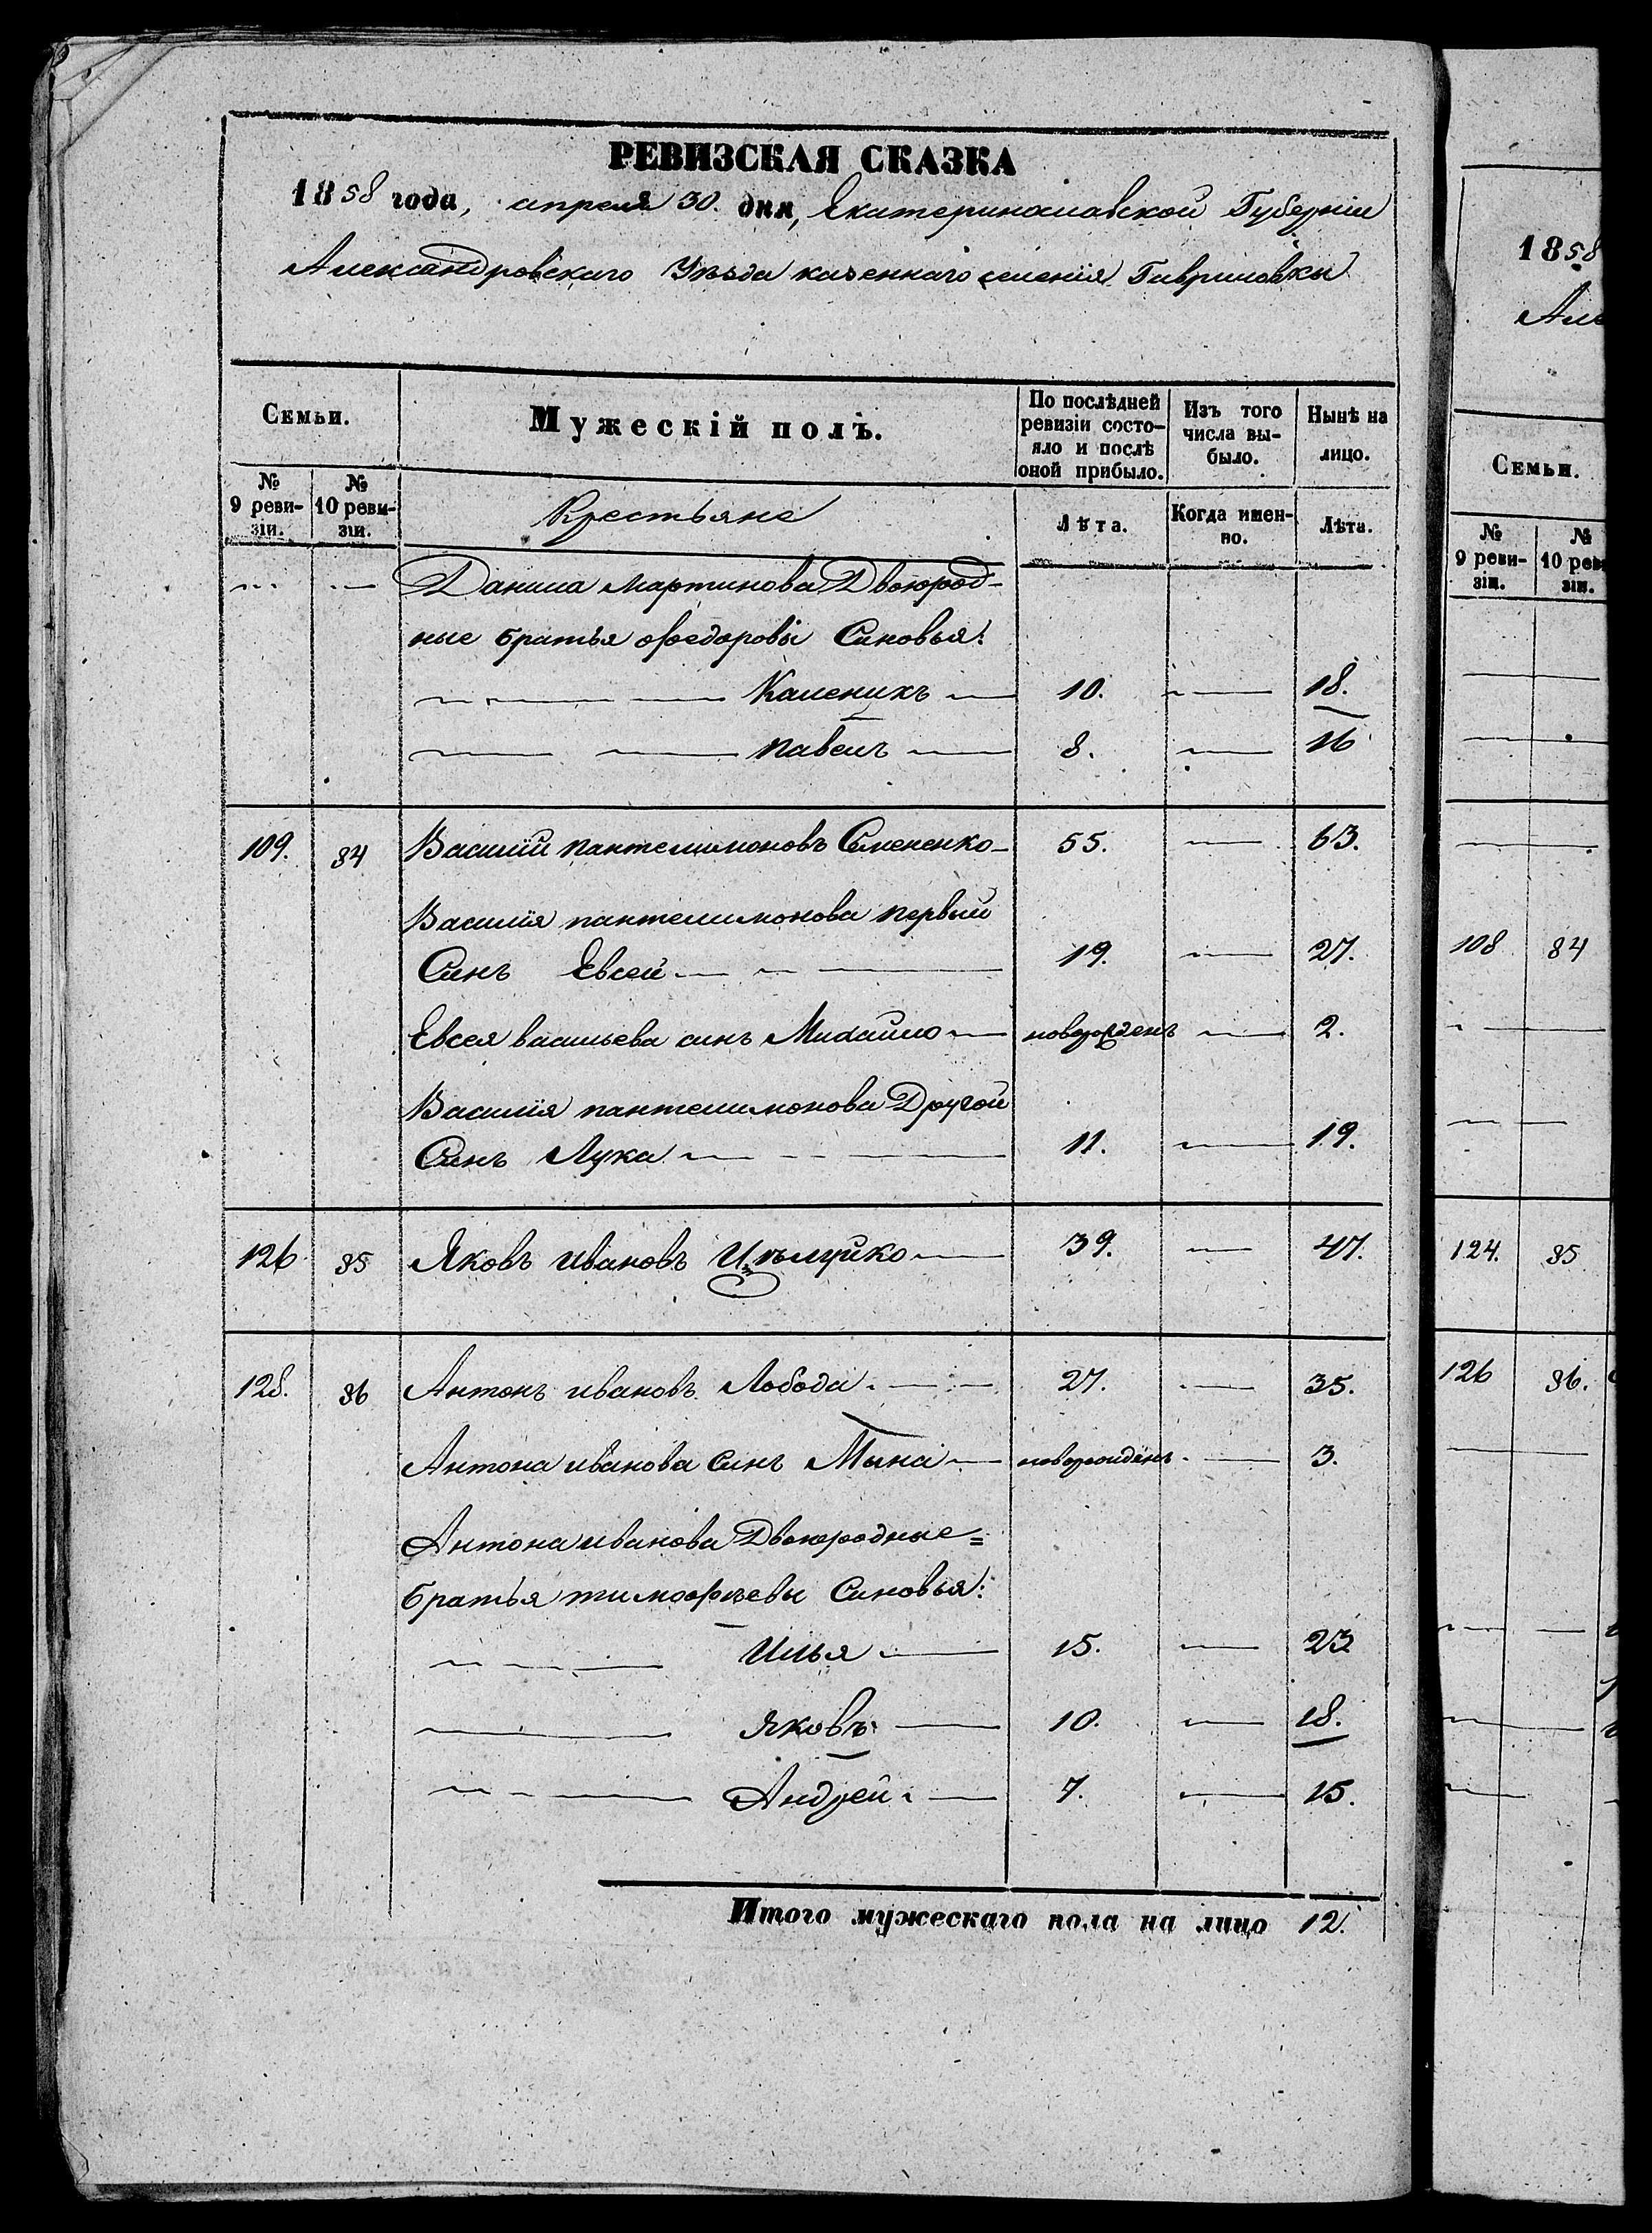 РЕВИЗСКАЯ СКАЗКА
1858 года, апреля 30. дня, Екатеринославской Губернии
Александровскаго Уѣзда казеннаго селенія Гавриловки
Семьи. Мужескій полъ. По послѣдней ревизіи состо-яло и послѣ оной прибыло. Изъ того числа вы-было. Нынѣ на лицо.
№ 9 реви-зіи. № 10 реви-зіи. Крестьяне Лѣта. Когда имен-но. Лѣта.
Данила Мартинова Двоюрод-
ные братья Федоровы Синовья:
Каленикъ 10. 18.
Павелъ 8. 16
109. 84 Василій Пантелимоновъ Семененко 55. 63.
Василія Пантелимонова первый
Синъ Евсей 19. 27.
Евсея Васильева синъ Михайло новорожденъ 2.
Василія Пантелимонова Другой
Синъ Лука 11. 19.
126 85 Яковъ Ивановъ 39. 47.
128. 86 Антонъ Ивановъ Лобода 27. 35.
Антона Иванова Синъ новорожденъ 3.
Антона Иванова Двоюродные=
братья Тимофѣевы Синовья:
Илья 15. 23
Яковъ 10. 18.
Андрей 7. 15.
Итого мужескаго пола на лицо 12.
1858
Але
Семьи.
№ 9 реви-зіи. № 10 реви-зіи.
108 84
124. 85
126 86.